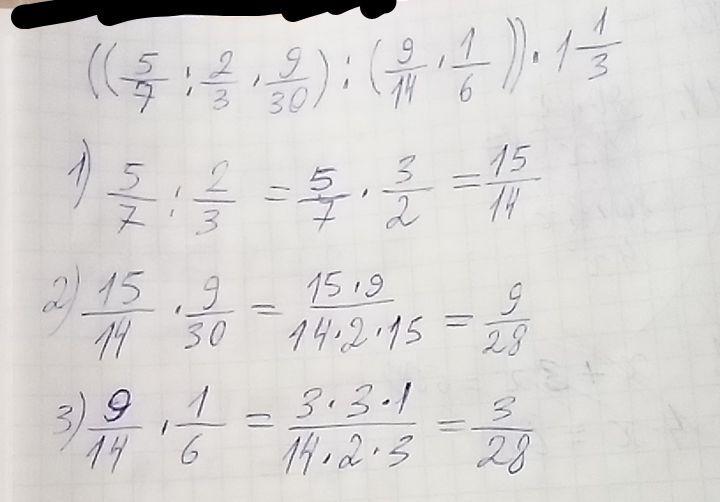 ((5/7 : 2/3 · 9/30) : (9/14 · 1/6)) · 1 1/3
1) 5/7 : 2/3 = 5/7 · 3/2 = 15/14
2) 15/14 · 9/30 = 15·9/14·2·15 = 9/28
3) 9/14 · 1/6 = 3·3·1/14·2·3 = 3/28